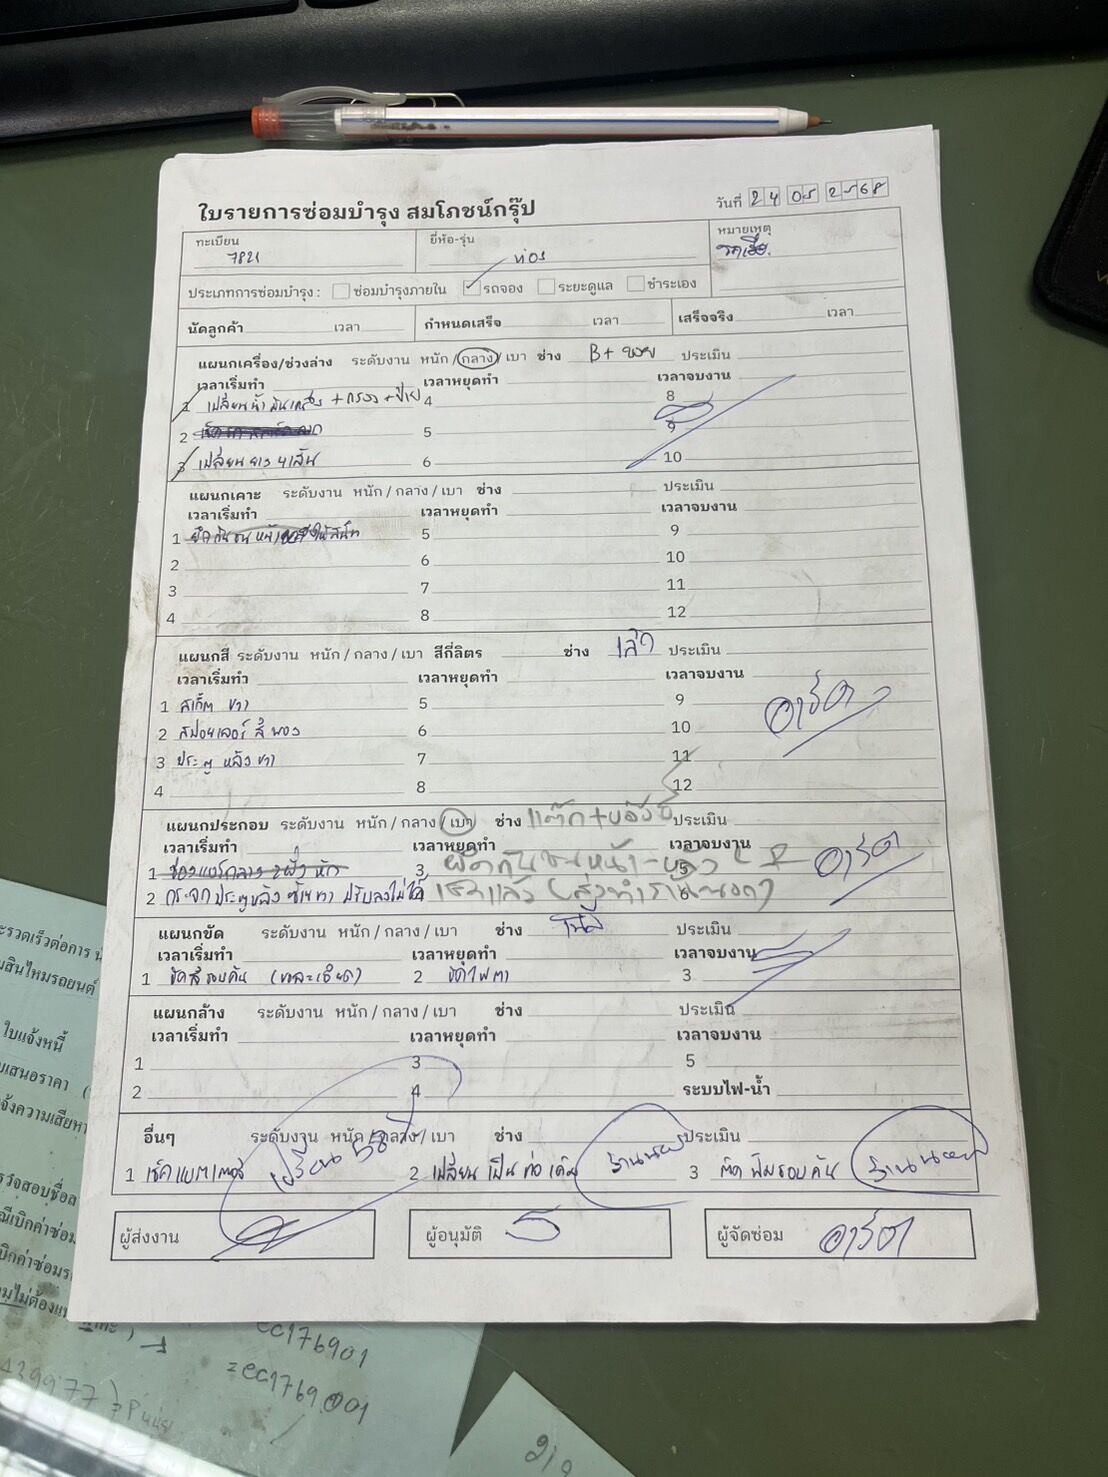 ใบรายการซ่อมบำรุง สมโภชน์กรุ๊ป
วันที่ 24 05 2568
ทะเบียน
ยี่ห้อ-รุ่น
หมายเหตุ
7821
ประเภทการซ่อมบำรุง : ซ่อมบำรุงภายใน รถจอง ระยะดูแล ชำระเอง
นัดลูกค้า เวลา กำหนดเสร็จ เวลา เสร็จจริง เวลา
แผนกเครื่อง/ช่วงล่าง ระดับงาน หนัก / กลาง / เบา ช่าง B+ ประเมิน
เวลาเริ่มทำ เวลาหยุดทำ เวลาจบงาน
1 เปลี่ยนน้ำมันเครื่อง + กรอง 4 8
2 5 9
3 เปลี่ยนยาง 4 เส้น 6 10
แผนกเคาะ ระดับงาน หนัก / กลาง / เบา ช่าง ประเมิน
เวลาเริ่มทำ เวลาหยุดทำ เวลาจบงาน
1 5 9
2 6 10
3 7 11
4 8 12
แผนกสี ระดับงาน หนัก / กลาง / เบา สีกี่ลิตร ช่าง ประเมิน
เวลาเริ่มทำ เวลาหยุดทำ เวลาจบงาน
1 สเก็ต ขวา 5 9
2 สปอยเลอร์ 6 10
3 ประตู หลัง ขวา 7 11
4 8 12
อาร์ต
แผนกประกอบ ระดับงาน หนัก / กลาง / เบา ช่าง ประเมิน
เวลาเริ่มทำ เวลาหยุดทำ เวลาจบงาน
1 3 ยึดกันชนหน้า-หลัง 5 อาร์ต
2 กระจกประตูหลัง ปรับลงไม่ได้
แผนกขัด ระดับงาน หนัก / กลาง / เบา ช่าง ประเมิน
เวลาเริ่มทำ เวลาหยุดทำ เวลาจบงาน
1 ขัดสีรอบคัน (ละเอียด) 2 ขัดไฟตา 3
แผนกล้าง ระดับงาน หนัก / กลาง / เบา ช่าง ประเมิน
เวลาเริ่มทำ เวลาหยุดทำ เวลาจบงาน
1 3 5
2 4 ระบบไฟ-น้ำ
อื่นๆ ระดับงาน หนัก / กลาง / เบา ช่าง ประเมิน
1 เช็คแบตเตอรี่ 2 เปลี่ยนเป็นท่อเดิม 3 ติดฟิล์มรอบคัน
ผู้ส่งงาน
ผู้อนุมัติ
ผู้จัดซ่อม อาร์ต
ใบแจ้งหนี้
ec176901
=ec1769001